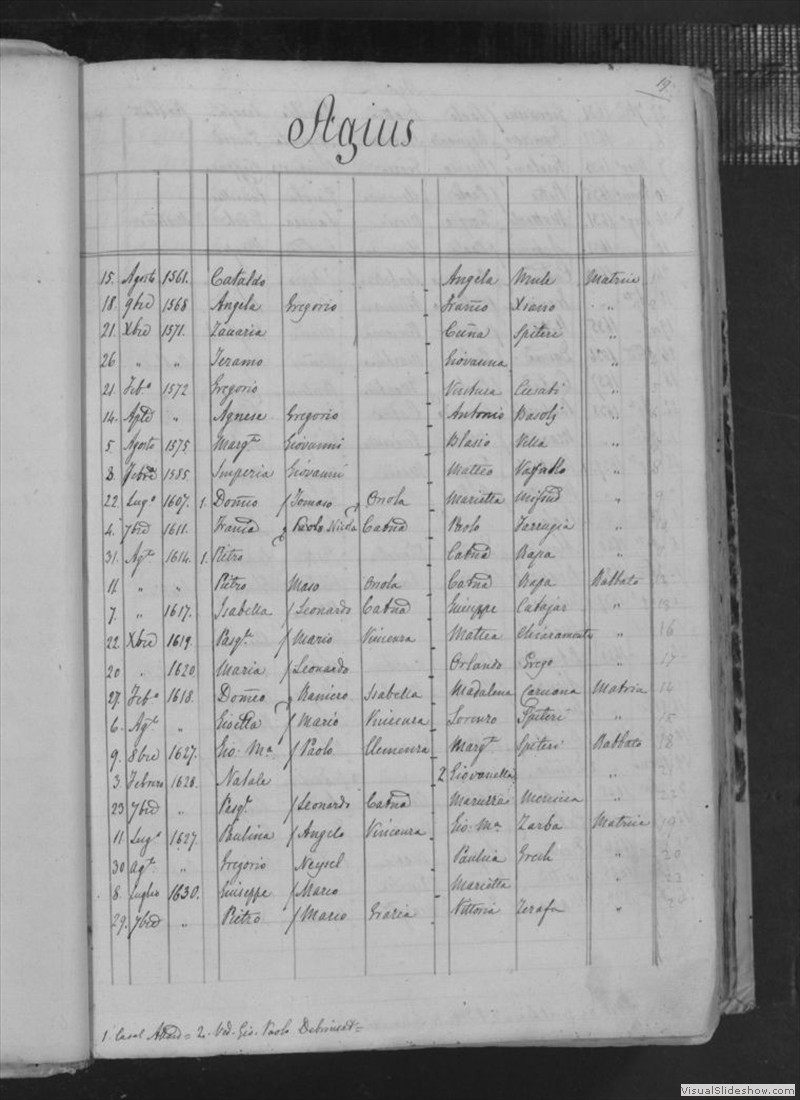 19.
Agius
15. Agosto 1561. Cataldo Angela Mule Matrice
18. 9bre 1568 Angela Gregorio Xiario "
21. Xbre 1571. Zauaria Spiteri "
26 " " Jeramo Giovanna "
21. Feb.o 1572 Gregorio Ventura "
14. Aple " Agnese Gregorio Antonio "
5. Agosto 1575 Marg.ta Giovanni Blasio Vella "
3. Febre 1585. Imperia Giovanni Matteo Vassallo "
22. Lug.o 1607. 1. Domco / Tomaso Onola Marietta Mifsud "
4. 7bre 1611. Franca Paolo Nicola Catna Paolo Farrugia "
31. Ag.to 1614. 1. Pietro Catna Rapa "
11 " " Pietro Maso Onola Catna Rapa Rabbato
7. " 1617. Isabella / Leonardo Catna Giuseppe Catajar "
22. Xbre 1619. Pasq.le / Mario Vincenza Mattea Chiaramonte " 16
20 " 1620. Maria / Leonardo Orlando Grego " 17
27. Feb.o 1618. Domco Raniero Isabella Madalena Caruana Matrice 14
6. Ag.to " / Mario Vincenza Lorenzo Spiteri " 15
9. 8bre 1627. Gio: Ma / Paolo Clemenza Marg.ta Spiteri Rabbato 18
3. Febraro 1628. Natale 2 Giovanella "
23 7bre " Pasq.le / Leonardo Catna Maruzza "
11. Lug.o 1627. Paulina / Angelo Vincenza Gio: Ma Zarba Matrice
30 Ag.to " Gregorio Neysel Paulica Grech " 20
8. Luglio 1630. Giuseppe / Marco Marietta "
29. 7bre " Pietro / Marco Grazia Vittoria Zerafa "
1. Casal Attard = 2. Ved. Gio. Paolo
VisualSlideshow.com